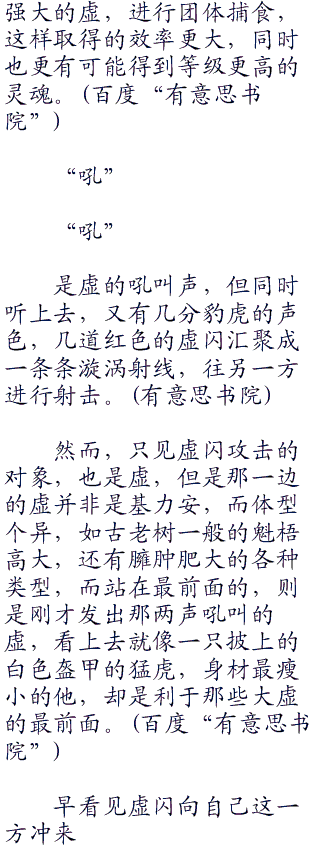 强大的虚，进行团体捕食，
这样取得的效率更大，同时
也更有可能得到等级更高的
灵魂。(百度“有意思书
院”)
“吼”
“吼”
是虚的吼叫声，但同时
听上去，又有几分豹虎的声
色，几道红色的虚闪汇聚成
一条条漩涡射线，往另一方
进行射击。(有意思书院)
然而，只见虚闪攻击的
对象，也是虚，但是那一边
的虚并非是基力安，而体型
个异，如古老树一般的魁梧
高大，还有臃肿肥大的各种
类型，而站在最前面的，则
是刚才发出那两声吼叫的
虚，看上去就像一只披上的
白色盔甲的猛虎，身材最瘦
小的他，却是利于那些大虚
的最前面。(百度“有意思书
院”)
早看见虚闪向自己这一
方冲来